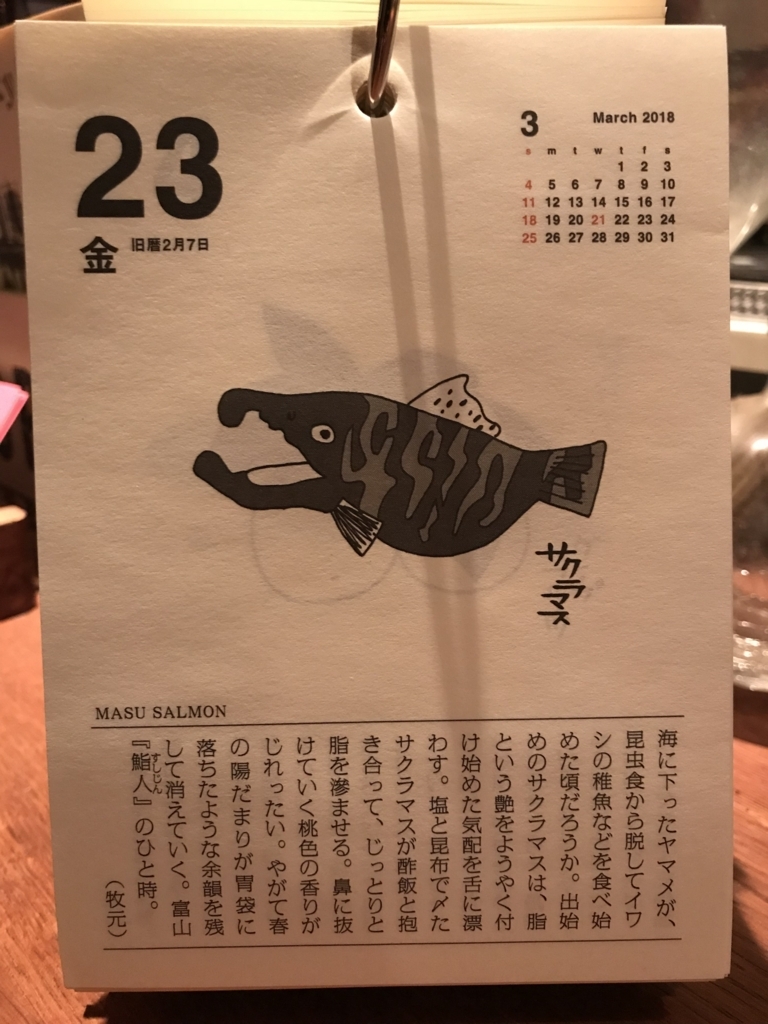 23
金 旧暦2月7日
3 March 2018
s m t w t f s
1 2 3
4 5 6 7 8 9 10
11 12 13 14 15 16 17
18 19 20 21 22 23 24
25 26 27 28 29 30 31
サクラマス
MASU SALMON
海に下ったヤマメが、
昆虫食から脱してイワ
シの稚魚などを食べ始
めた頃だろうか。出始
めのサクラマスは、脂
という艶をようやく付
け始めた気配を舌に漂
わす。塩と昆布で〆た
サクラマスが酢飯と抱
き合って、じっとりと
脂を滲ませる。鼻に抜
けていく桃色の香りが
じれったい。やがて春
の陽だまりが胃袋に
落ちたような余韻を残
して消えていく。富山
『鮨人』のひと時。
すしじん
（牧元）